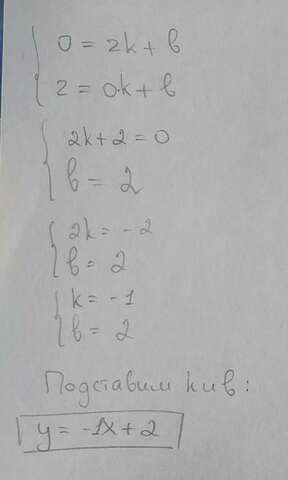 0 = 2k + в
2 = 0·k + в
2k + 2 = 0
в = 2
2k = -2
в = 2
k = -1
в = 2
Подставим k и в:
y = -1x + 2